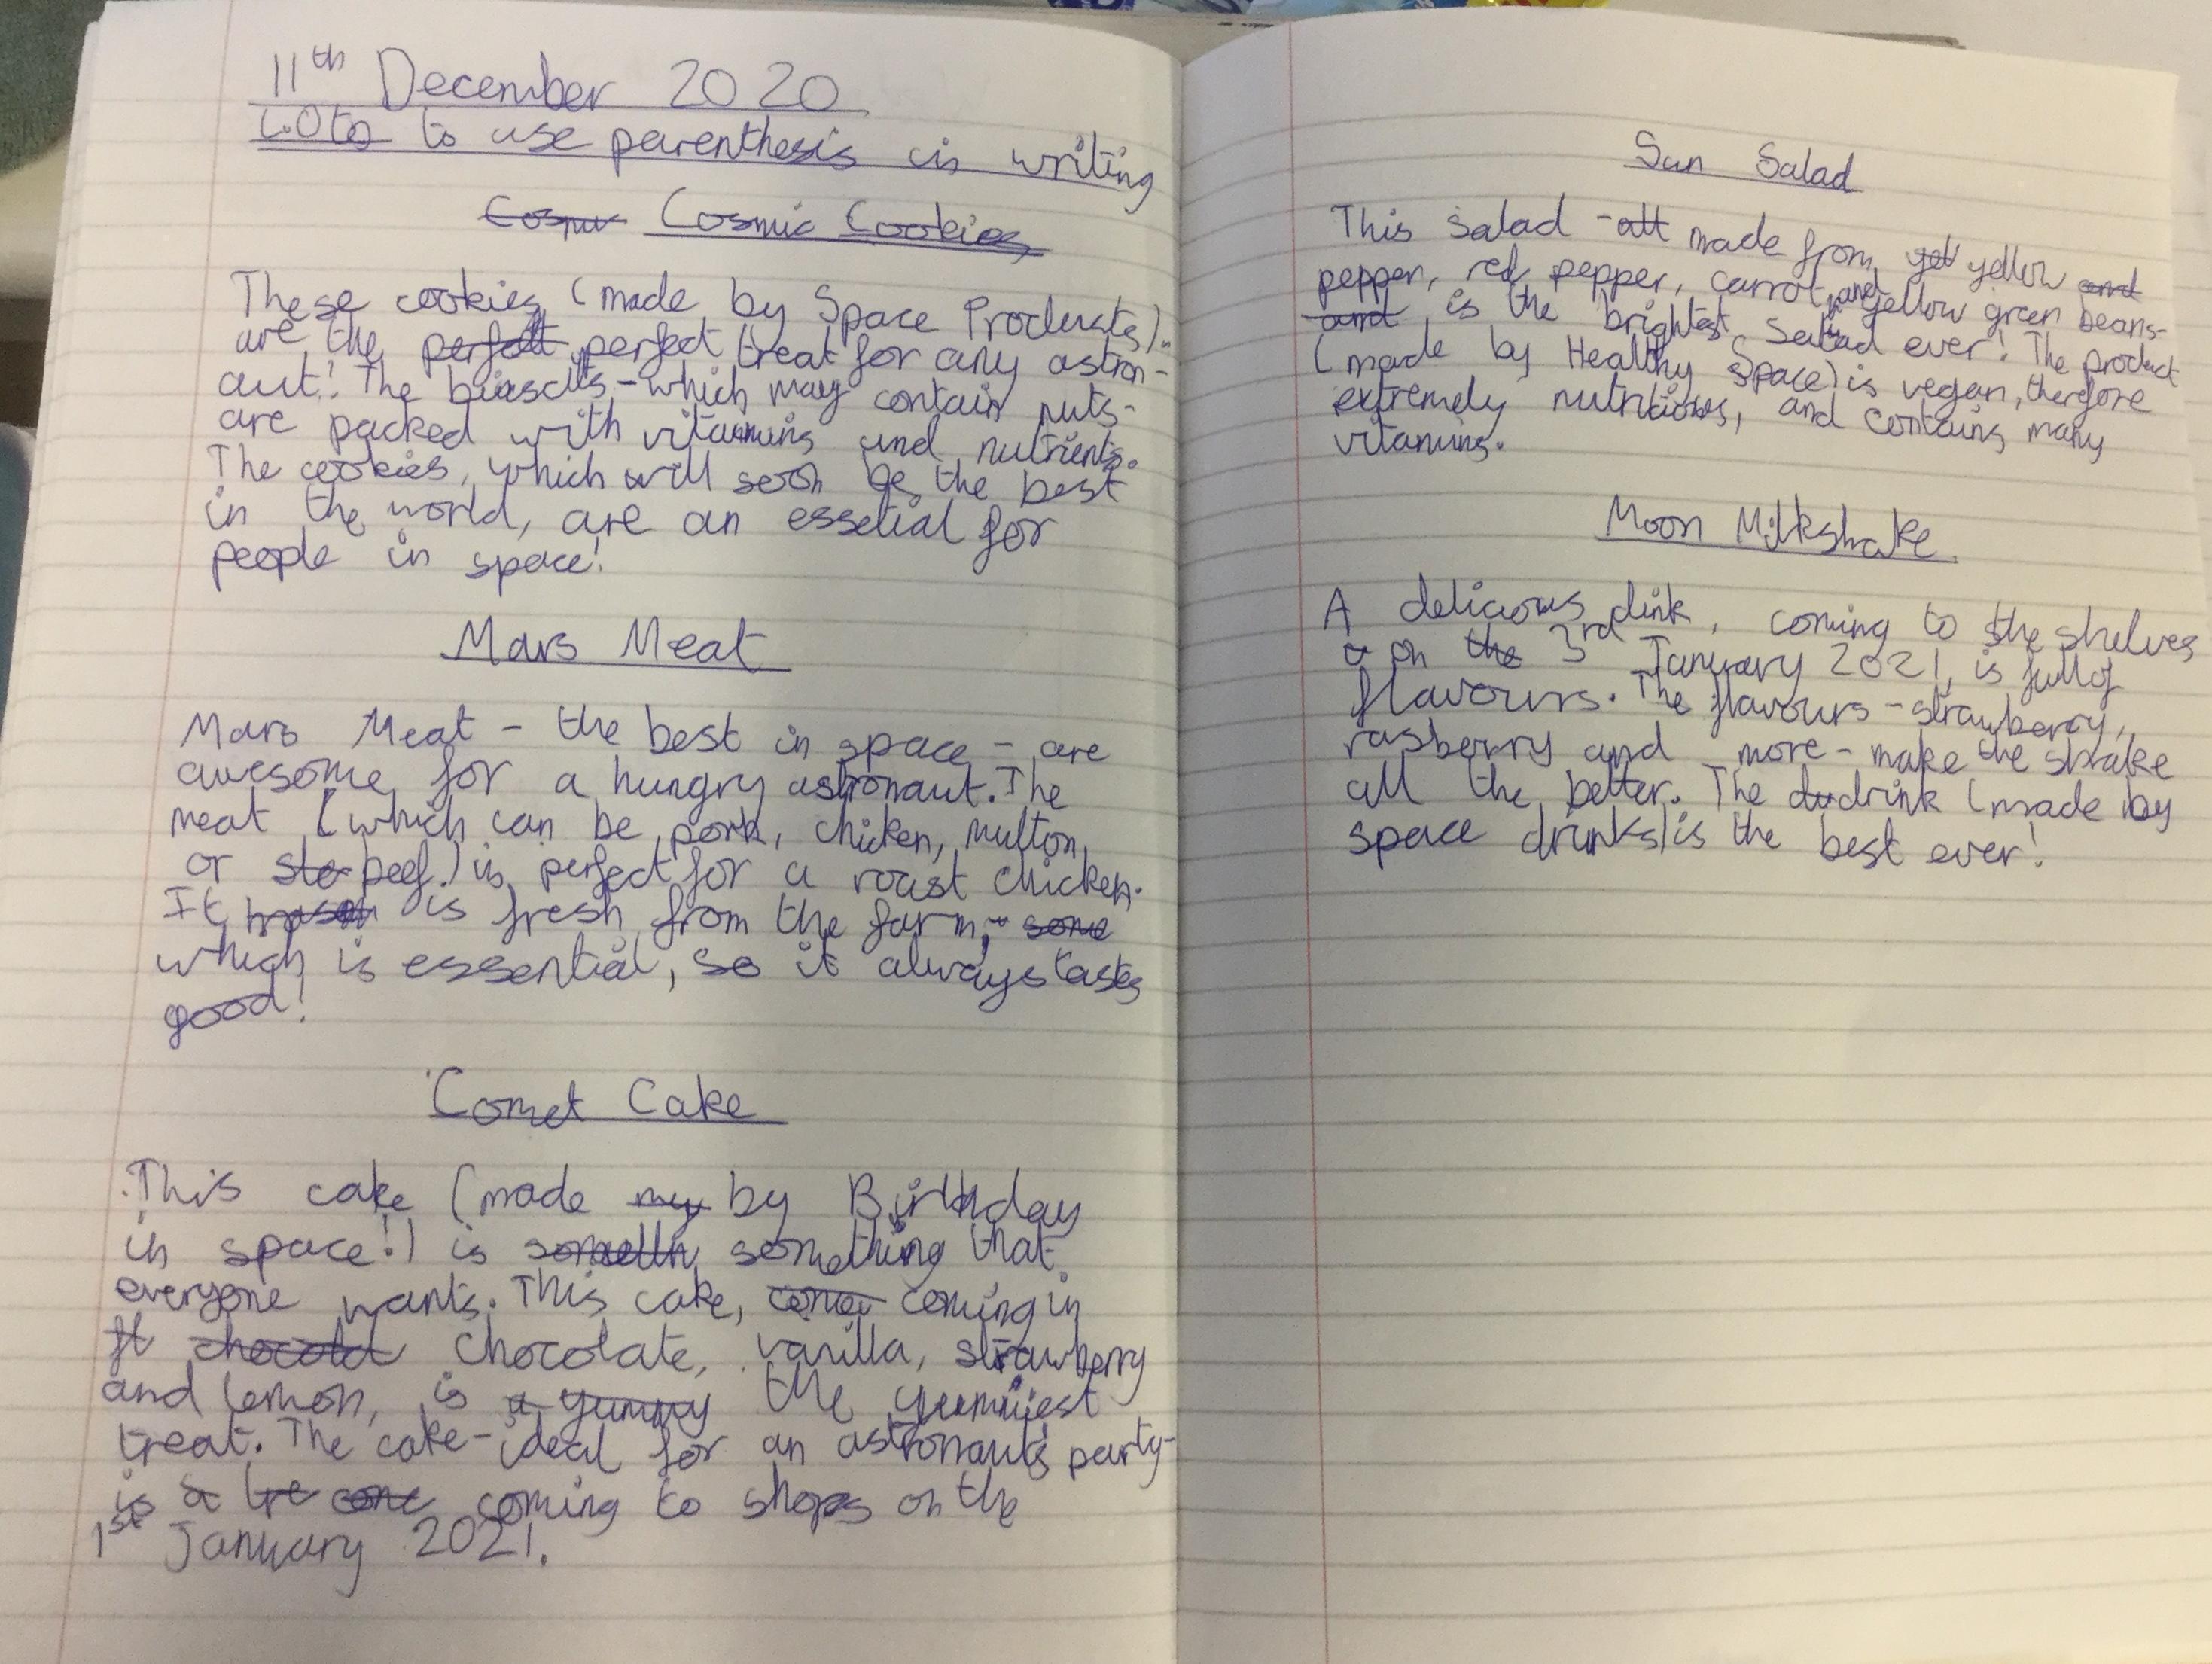 11th December 2020
L.O to to use parenthesis in writing
Cosmic Cookies
These cookies (made by Space Producsts)
are the perfect treat for any astron-
aut! The biuscits - which may contain nuts -
are packed with vitamins and nutrients.
The cookies, which will soon be the best
in the world, are an essetial for
people in space!
Mars Meat
Mars Meat - the best in space - are
awesome for a hungry astronaut. The
meat (which can be pork, chicken, mutton
or beef.) is perfect for a roast chicken.
It is fresh from the farm,
which is essential, so it always tastes
good!
Comet Cake
This cake (made by Birthday
in space!) is something that
everyone wants. This cake, coming in
chocolate, vanilla, strawberry
and lemon, is the yummiest
treat. The cake - ideal for an astronauts party -
is coming to shops on the
1st January 2021.
Sun Salad
This salad - made from yellow
pepper, red pepper, carrot, and yellow green beans -
is the brightest salad ever! The product
(made by Healthy Space) is vegan, therefore
extremely nutritious, and contains many
vitamins.
Moon Milkshake
A delicious dink, coming to the shelves
on 3rd January 2021, is full of
flavours. The flavours - strawberry,
rasberry and more - make the shake
all the better. The drink (made by
space drinks) is the best ever!